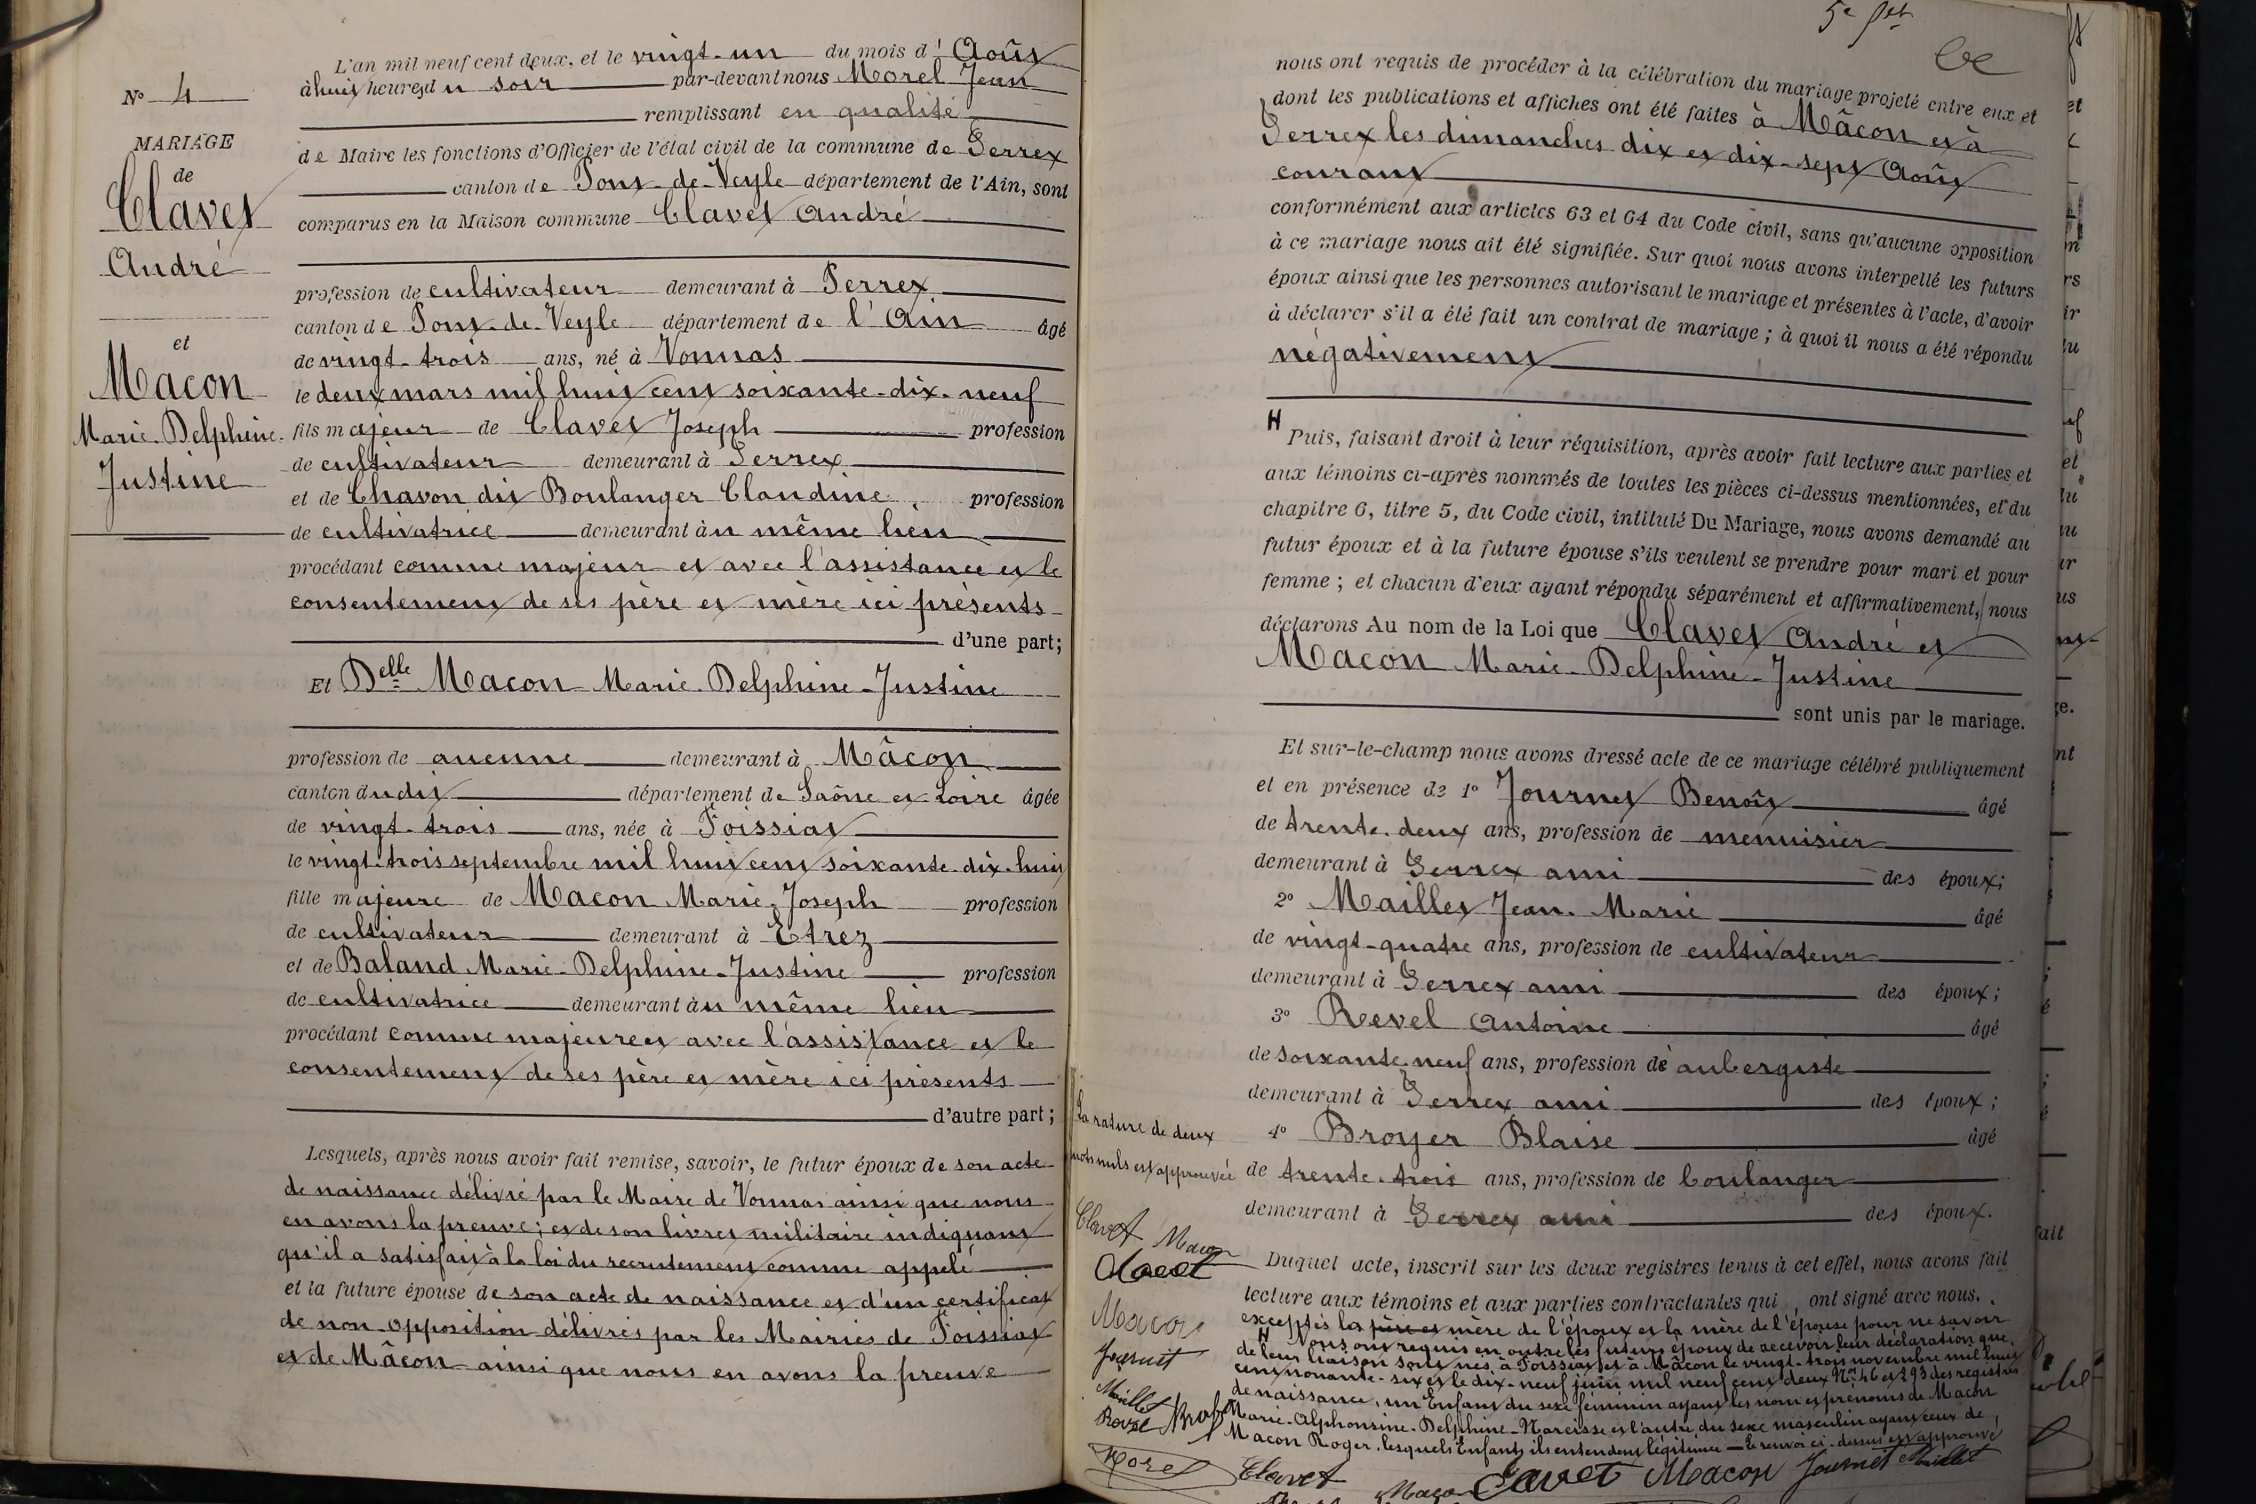 N° 4
MARIAGE
de
Clavet
André
et
Macon
Marie-Delphine-
Justine
L'an mil neuf cent deux, et le vingt-un du mois d'Août
à huit heures du soir par-devant nous Morel Jean
remplissant en qualité
de Maire les fonctions d'Officier de l'état civil de la commune de Perrex
canton de Pont-de-Veyle département de l'Ain, sont
comparus en la Maison commune Clavet André
profession de cultivateur demeurant à Perrex
canton de Pont-de-Veyle département de l'Ain âgé
de vingt-trois ans, né à Vonnas
le deux mars mil huit cent soixante-dix-neuf
fils majeur de Clavet Joseph profession
de cultivateur demeurant à Perrex
et de Chavon dit Boulanger Claudine profession
de cultivatrice demeurant àu même lieu
procédant comme majeur et avec l'assistance et le
consentement de ses père et mère ici présents
d'une part;
Et Delle Macon Marie-Delphine-Justine
profession de aucune demeurant à Mâcon
canton dudit département de Saône et Loire âgée
de vingt-trois ans, née à Foissiat
le vingt-trois septembre mil huit cent soixante-dix-huit
fille majeure de Macon Marie-Joseph profession
de cultivateur demeurant à Etrez
et de Baland Marie-Delphine-Justine profession
de cultivatrice demeurant àu même lieu
procédant comme majeure et avec l'assistance et le
consentement de ses père et mère ici présents
d'autre part;
Lesquels, après nous avoir fait remise, savoir, le futur époux de son acte
de naissance délivré par le Maire de Vonnas ainsi que nous
en avons la preuve; et de son livret militaire indiquant
qu'il a satisfait à la loi du recrutement comme appelé
et la future épouse de son acte de naissance et d'un certificat
de non-opposition délivrés par les Mairies de Foissiat
et de Mâcon ainsi que nous en avons la preuve
nous ont requis de procéder à la célébration du mariage projeté entre eux et
dont les publications et affiches ont été faites à Mâcon et à
Perrex les dimanches dix et dix-sept Août
courant
conformément aux articles 63 et 64 du Code civil, sans qu'aucune opposition
à ce mariage nous ait été signifiée. Sur quoi nous avons interpellé les futurs
époux ainsi que les personnes autorisant le mariage et présentes à l'acte, d'avoir
à déclarer s'il a été fait un contrat de mariage; à quoi il nous a été répondu
négativement
H
Puis, faisant droit à leur réquisition, après avoir fait lecture aux parties et
aux témoins ci-après nommés de toutes les pièces ci-dessus mentionnées, et du
chapitre 6, titre 5, du Code civil, intitulé Du Mariage, nous avons demandé au
futur époux et à la future épouse s'ils veulent se prendre pour mari et pour
femme; et chacun d'eux ayant répondu séparément et affirmativement, nous
déclarons Au nom de la Loi que Clavet André et
Macon Marie-Delphine-Justine
sont unis par le mariage.
Et sur-le-champ nous avons dressé acte de ce mariage célébré publiquement
et en présence de 1° Journet Benoît âgé
de trente-deux ans, profession de menuisier
demeurant à Perrex ami des époux;
2° Maillet Jean-Marie âgé
de vingt-quatre ans, profession de cultivateur
demeurant à Perrex ami des époux;
3° Revel Antoine âgé
de soixante-neuf ans, profession de aubergiste
demeurant à Perrex ami des époux;
4° Broyer Blaise âgé
de trente-trois ans, profession de boulanger
demeurant à Perrex ami des époux.
Duquel acte, inscrit sur les deux registres tenus à cet effet, nous avons fait
lecture aux témoins et aux parties contractantes qui ont signé avec nous.
exceptés les père et mère de l'époux et la mère de l'épouse pour ne savoir
H Nous ont requis en outre les futurs époux de recevoir leur déclaration que
de leur liaison sont nés à Foissiat et à Mâcon le vingt-trois novembre mil huit
cent nonante-six et le dix-neuf juin mil neuf cent deux Nos 46 et 293 des registres
de naissance, un Enfant du sexe féminin ayant les nom et prénoms de Macon
Marie-Alphonsine-Delphine-Narcisse et l'autre du sexe masculin ayant ceux de
Macon Roger, lesquels Enfants ils entendent légitimer — Le renvoi ci-dessus est approuvé
La rature de deux
mots nuls est approuvée
Clavet Macon
Clavet
Macon
Journet
Maillet
Revel
Morel
Clavet Macon Clavet Macon Journet Maillet